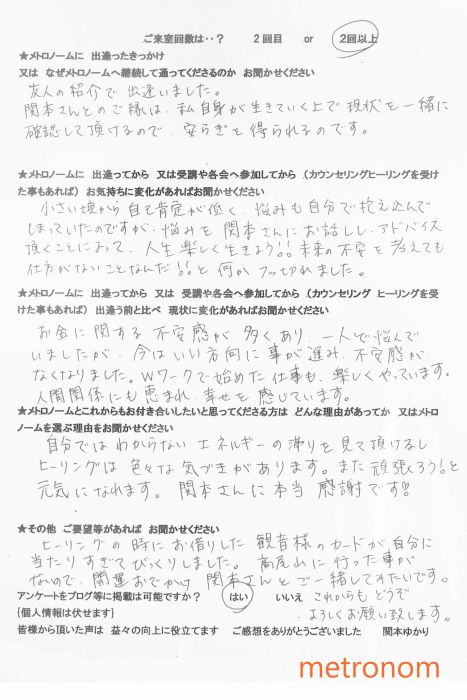 ご来室回数は‥？ 2回目 or 2回以上
★メトロノームに 出逢ったきっかけ
又は なぜメトロノームへ継続して通ってくださるのか お聞かせください
友人の紹介で出逢いました。
関本さんとのご縁は、私自身が生きていく上で現状を一緒に
確認して頂けるので、安らぎを得られるのです。
★メトロノームに 出逢ってから 又は受講や各会へ参加してから (カウンセリングヒーリングを受け
た事もあれば) お気持ちに変化があればお聞かせください
小さい頃から自己肯定が低く、悩みも自分で抱え込んで
しまっていたのですが、悩みを関本さんにお話しし、アドバイス
頂くことによって、人生楽しく生きよう!!未来の不安を考えても
仕方がないことなんだ!!と何かフッ切れました。
★メトロノームに 出逢ってから 又は 受講や各会へ参加してから (カウンセリング ヒーリングを受
けた事もあれば) 出逢う前と比べ 現状に変化があればお聞かせください
お金に関する不安感が多くあり、一人で悩んで
いましたが、今はいい方向に事が進み、不安感が
なくなりました。Wワークで始めた仕事も、楽しくやっています。
人間関係にも恵まれ、幸せを感じています。
★メトロノームとこれからもお付き合いしたいと思ってくださる方は どんな理由があってか 又はメトロ
ノームを選ぶ理由をお聞かせください
自分ではわからないエネルギーの滞りを見て頂けるし
ヒーリングは色々な気づきがあります。また頑張ろう!と
元気になれます。関本さんに本当感謝です!!
★その他 ご要望等があれば お聞かせください
ヒーリングの時にお借りした観音様のカードが自分に
当たりすぎてびっくりしました。高尾山に行った事が
ないので、開運おでかけ関本さんとご一緒してみたいです。
アンケートをブログ等に掲載は可能ですか？ はい いいえ これからもどうぞ
{個人情報は伏せます} よろしくお願い致します。
皆様から頂いた声は 益々の向上に役立てます ご感想をありがとうございました 関本ゆかり
metronom